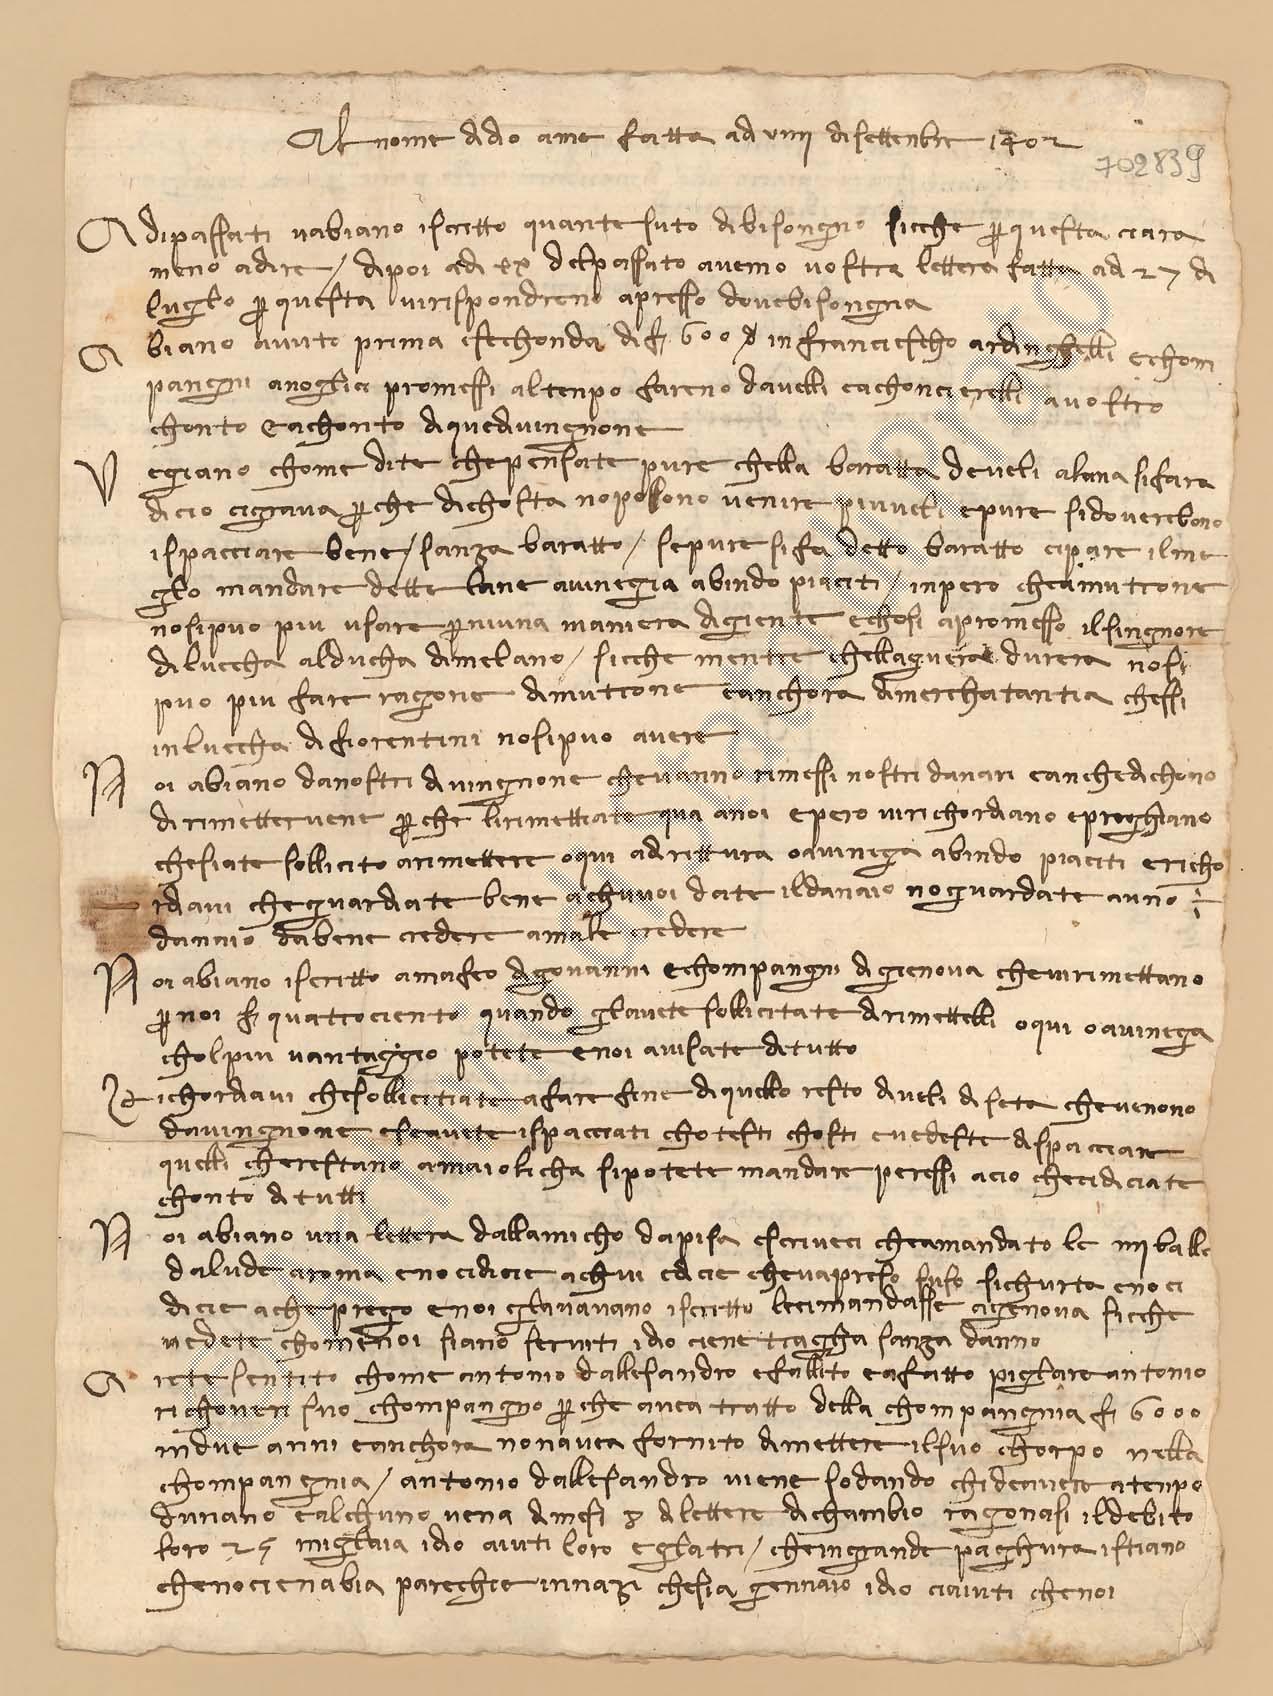 Al nome di dio ame fatta ad viiii di settenbre 1402
702839
A dipassati vabiano iscritto quante suto dibisongno sicche p questa ciara
meno adire / dipoi adi xx delpassato avemo vostra lettera fatta ad 27 di
luglo p questa virispondreno apresso dovebisongna
A biano avuto prima esechonda di f 600 in franciescho ardinghelli echom
pangni anoglia promessi altenpo fareno davelli eachoncierelli avostro
chonto eachonto diquedivingnone
V egiano chome dite chepensate pure chella baratta develi alana sifara
dicio cigrava p che dichosta nopossono venire piuveli epure sidoverebono
ispacciare bene / sanza baratto / sepure sifa detto baratto cipare ilme
glo mandare dette lane avinegia abindo piaciti / inpero cheamutrone
nosipuo piu usare p niuna maniera digiente echosi apromesso ilsingnore
diluccha alducha dimelano / sicche mentre chellaguera durera nosi
puo piu fare ragone dimutrone eanchora dimerchatantia chessi
inluccha di fiorentini nosipuo avere
N oi abiano danostri divingnone chevanno rimessi nostri danari eanchedichono
dirimettervene p che lirimettiate qua anoi epero virichordiano epreghiano
chesiate sollicito arimettere oqui adrittura oavinega abindo piaciti ericho
rdiavi cheguardiate bene achuvoi date ildanaio noguardate auno ½
danaio dabene credere amale credere
N oi abiano iscritto amafeo digovanni echompangni digienova chevirimettano
p noi f quattrociento quando glavete sollicitate dirimettelli oqui oavinega
cholpiu vantaggio potete enoi avisate ditutto
R ichordiavi chesollicitiate afare fine diquello resto diveli diseta chevenono
davingnone eseavete ispacciati chotesti chosti evedeste dispacciare
quelli cherestano amaiolicha sipotete mandare peressi acio checidiciate
chonto ditutti
N oi abiano una lettera dallamicho dapisa escriveci cheamandato le iiij balle
dalude aroma enocidicie achui edicie chevapreso suso sichurta enoci
dicie ache prego enoi glavavano iscritto lecimandasse agenova sicche
vedete chomenoi siano serviti idio ciene tragha sanza danno
A vete sentito chome antonio dallesandro efallito eafatto piglare antonio
richoveri suo chompangno p che avea tratto della chompangnia f 6000
indue anni eanchora nonavea fornito dimettere ilsuo chorpo nella
chompangnia / antonio dallesandro viene sodando chideavere atenpo
dunano ealchuno vena dimesi 8 dilettere dichambio ragonasi ildebito
loro 25 miglaia idio aiuti loro eglatri / cheingrande paghura istiano
chenocienabia parechie innazi chesia gennaio idio ciaiuti chenoi